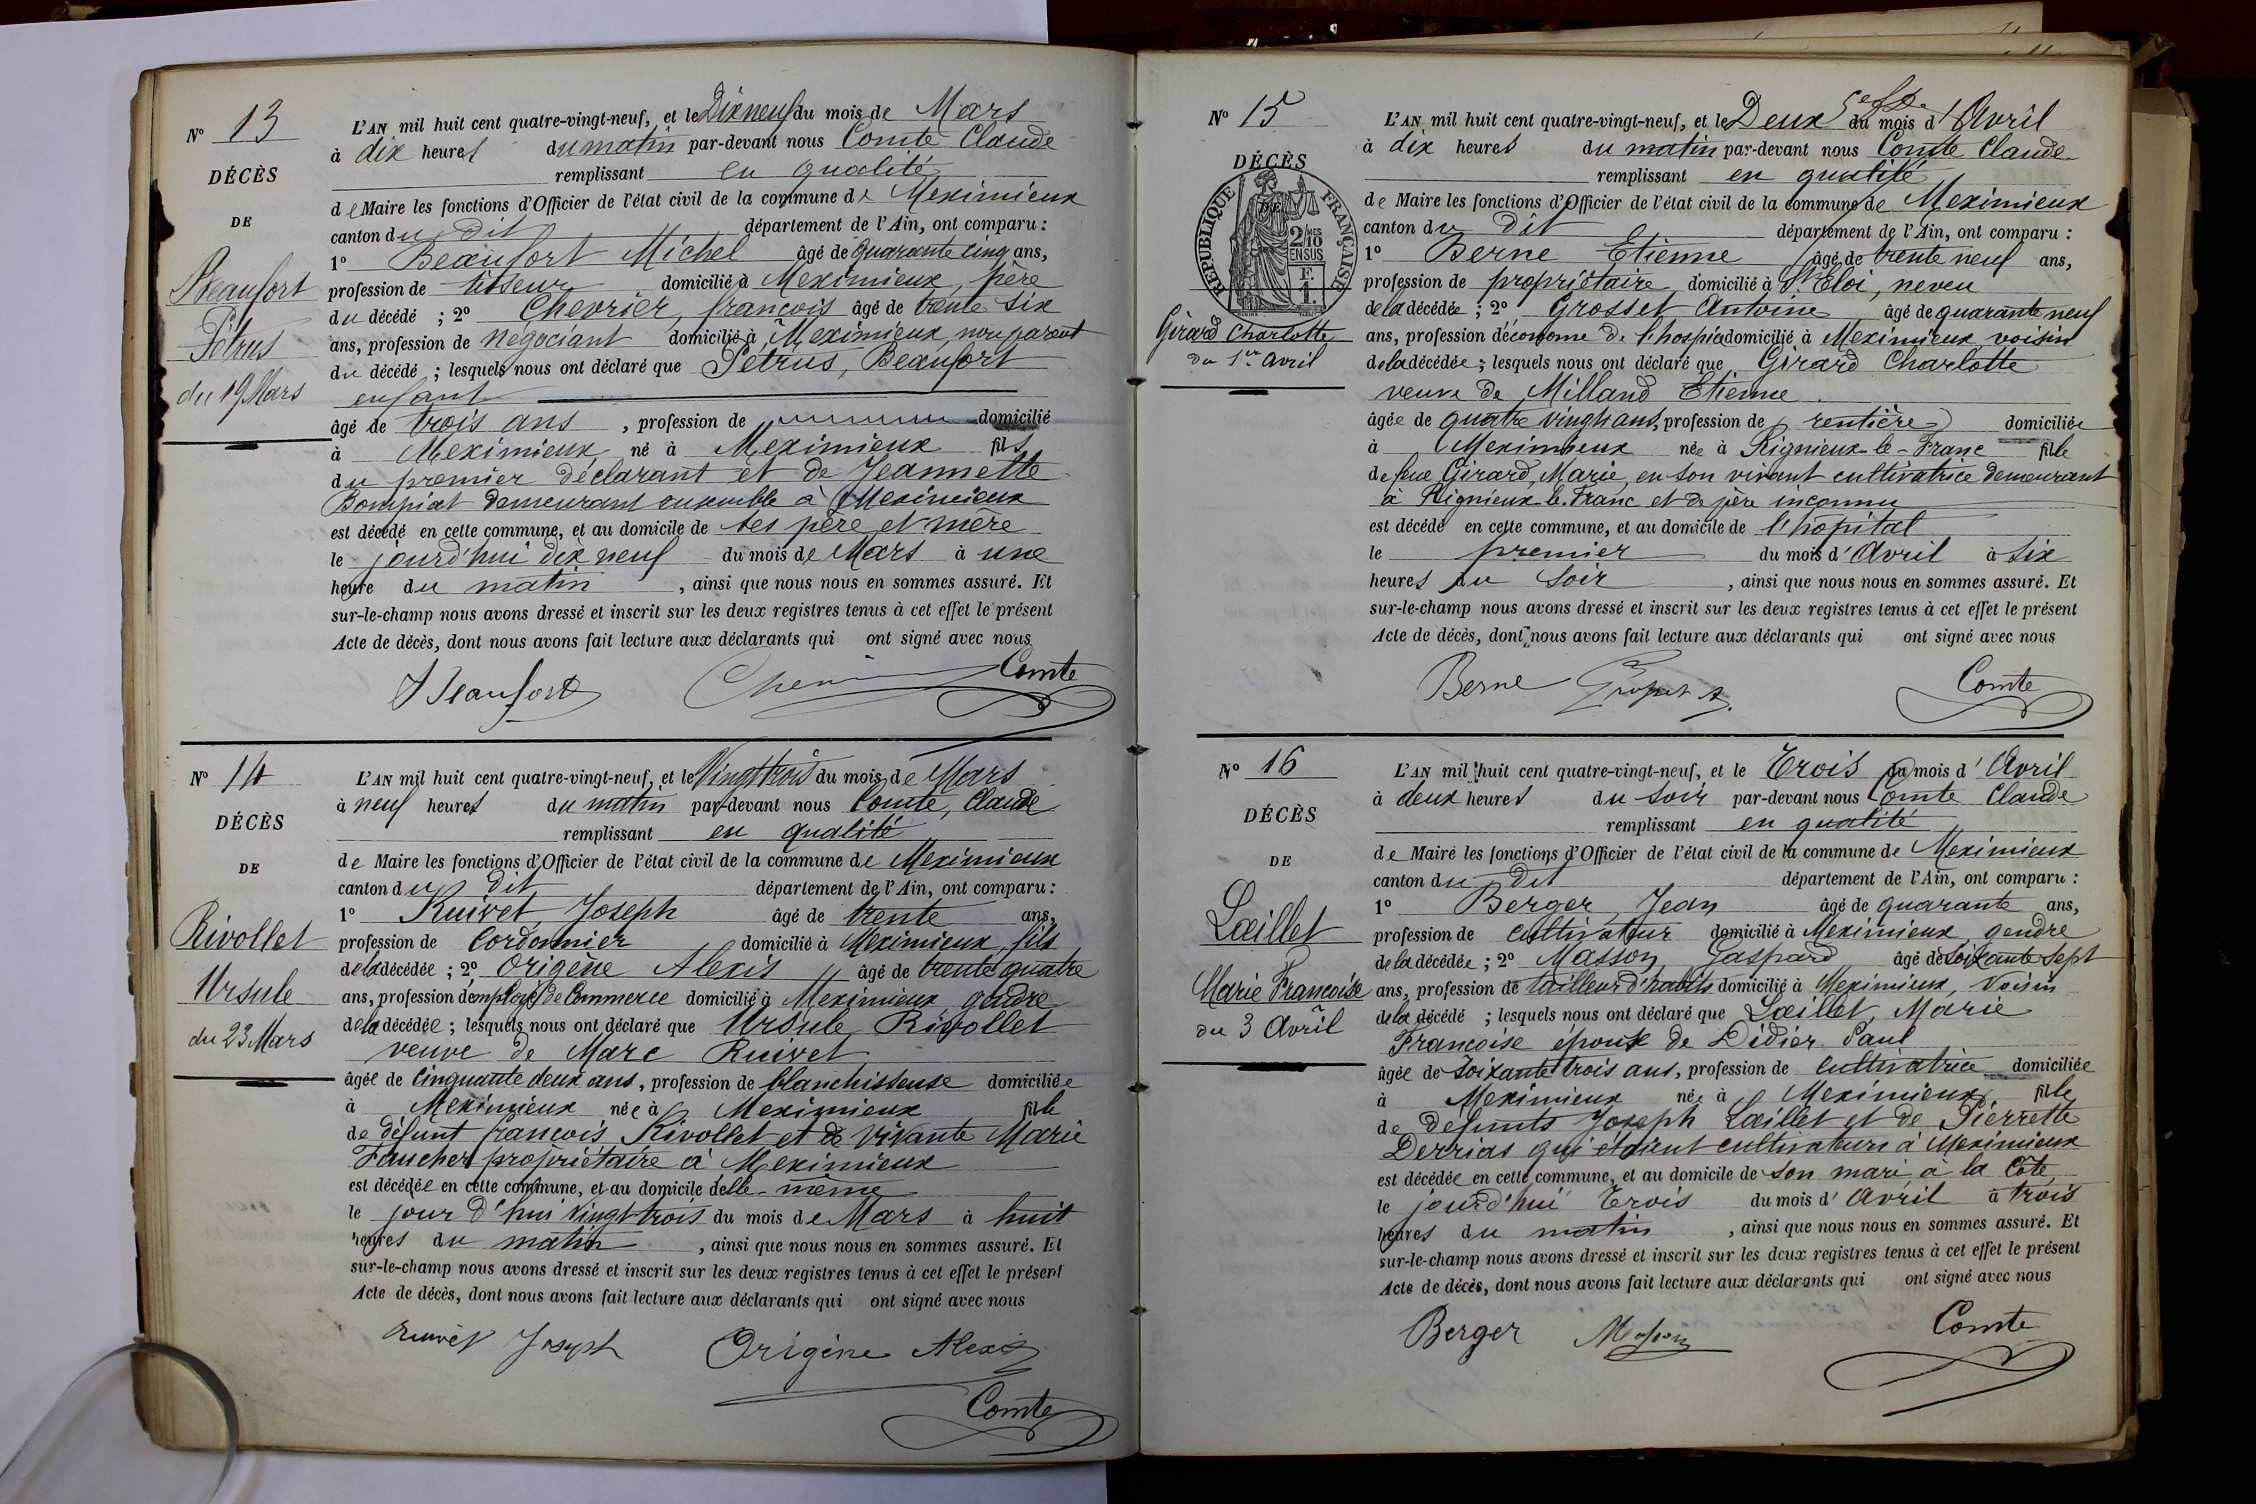 N° 13
DÉCÈS
DE
Beaufort
Pétrus
du 19 Mars
L'AN mil huit cent quatre-vingt-neuf, et le Dix neuf du mois de Mars
à dix heures du matin par-devant nous Comte Claude
remplissant en qualité
de Maire les fonctions d'Officier de l'état civil de la commune de Meximieux
canton du dit département de l'Ain, ont comparu :
1° Beaufort Michel âgé de quarante cinq ans,
profession de tisseur domicilié à Meximieux, père
du décédé ; 2° Chevrier, françois âgé de trente six
ans, profession de négociant domicilié à Meximieux, non parent
du décédé ; lesquels nous ont déclaré que Pétrus, Beaufort
enfant
âgé de trois ans , profession de domicilié
à Meximieux né à Meximieux fils
du premier déclarant et de Jeannette
Bompiat demeurant ensemble à Meximieux
est décédé en cette commune, et au domicile de ses père et mère
le jourd'hui dix neuf du mois de Mars à une
heure du matin , ainsi que nous nous en sommes assuré. Et
sur-le-champ nous avons dressé et inscrit sur les deux registres tenus à cet effet le présent
Acte de décès, dont nous avons fait lecture aux déclarants qui ont signé avec nous
Beaufort Comte
N° 14
DÉCÈS
DE
Rivollet
Ursule
du 23 Mars
L'AN mil huit cent quatre-vingt-neuf, et le Vingt trois du mois de Mars
à neuf heures du matin par-devant nous Comte, Claude
remplissant en qualité
de Maire les fonctions d'Officier de l'état civil de la commune de Meximieux
canton du dit département de l'Ain, ont comparu :
1° Ruivet Joseph âgé de trente ans,
profession de Cordonnier domicilié à Meximieux, fils
de la décédée ; 2° Origène Alexis âgé de trente quatre
ans, profession d'employé de Commerce domicilié à Meximieux gendre
de la décédée ; lesquels nous ont déclaré que Ursule Rivollet
veuve de Marc Ruivet
âgée de Cinquante deux ans, profession de blanchisseuse domiciliée
à Meximieux née à Meximieux fille
de défunt françois Rivollet et de vivante Marie
Faucher propriétaire à Meximieux
est décédée en cette commune, et au domicile d'elle-même
le jour d'hui vingt trois du mois de Mars à huit
heures du matin , ainsi que nous nous en sommes assuré. Et
sur-le-champ nous avons dressé et inscrit sur les deux registres tenus à cet effet le présent
Acte de décès, dont nous avons fait lecture aux déclarants qui ont signé avec nous
Ruivet Joseph Origène Alexis
Comte
N° 15
DÉCÈS
DE
RÉPUBLIQUE FRANÇAISE
2/10 MES
EN SUS
F.
1.
Girard Charlotte
du 1er avril
L'AN mil huit cent quatre-vingt-neuf, et le Deux du mois d'Avril
à dix heures du matin par-devant nous Comte Claude
remplissant en qualité
de Maire les fonctions d'Officier de l'état civil de la commune de Meximieux
canton du Dit département de l'Ain, ont comparu :
1° Berne Etienne âgé de trente neuf ans,
profession de propriétaire domicilié à St Eloi, neveu
de la décédée ; 2° Grosset Antoine âgé de quarante neuf
ans, profession d'économe de l'hospice domicilié à Meximieux voisin
de la décédée ; lesquels nous ont déclaré que Girard Charlotte
veuve de Milland Etienne
âgée de quatre vingts ans, profession de rentière domiciliée
à Meximieux née à Rignieux-le-Franc fille
de feue Girard, Marie, en son vivant cultivatrice demeurant
à Rignieux-le-Franc et de père inconnu
est décédé en cette commune, et au domicile de l'hopital
le premier du mois d'Avril à six
heures du soir , ainsi que nous nous en sommes assuré. Et
sur-le-champ nous avons dressé et inscrit sur les deux registres tenus à cet effet le présent
Acte de décès, dont nous avons fait lecture aux déclarants qui ont signé avec nous
Berne Grosset A. Comte
N° 16
DÉCÈS
DE
Lœillet
Marie Françoise
du 3 Avril
L'AN mil huit cent quatre-vingt-neuf, et le Trois du mois d'Avril
à deux heures du soir par-devant nous Comte Claude
remplissant en qualité
de Maire les fonctions d'Officier de l'état civil de la commune de Meximieux
canton du dit département de l'Ain, ont comparu :
1° Berger, Jean âgé de quarante ans,
profession de cultivateur domicilié à Meximieux, gendre
de la décédée ; 2° Masson, Gaspard âgé de soixante sept
ans, profession de tailleur d'habits domicilié à Meximieux, Voisin
de la décédé ; lesquels nous ont déclaré que Lœillet, Marie
Françoise épouse de Didier Paul
âgée de soixante trois ans, profession de cultivatrice domiciliée
à Meximieux née à Meximieux fille
de défunts Joseph Lœillet et de Pierrette
Derrias qui étaient cultivateurs à Meximieux
est décédée en cette commune, et au domicile de son mari à la Côte
le jourd'hui Trois du mois d'avril à trois
heures du matin , ainsi que nous nous en sommes assuré. Et
sur-le-champ nous avons dressé et inscrit sur les deux registres tenus à cet effet le présent
Acte de décès, dont nous avons fait lecture aux déclarants qui ont signé avec nous
Berger Masson Comte